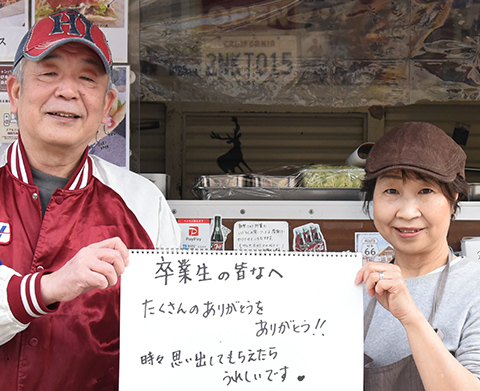 HY
CALIFORNIA
3NET015
PayPay
66
卒業生の皆なへ
たくさんのありがとうを
ありがとう!!
時々思い出してもらえたら
うれしいです♥